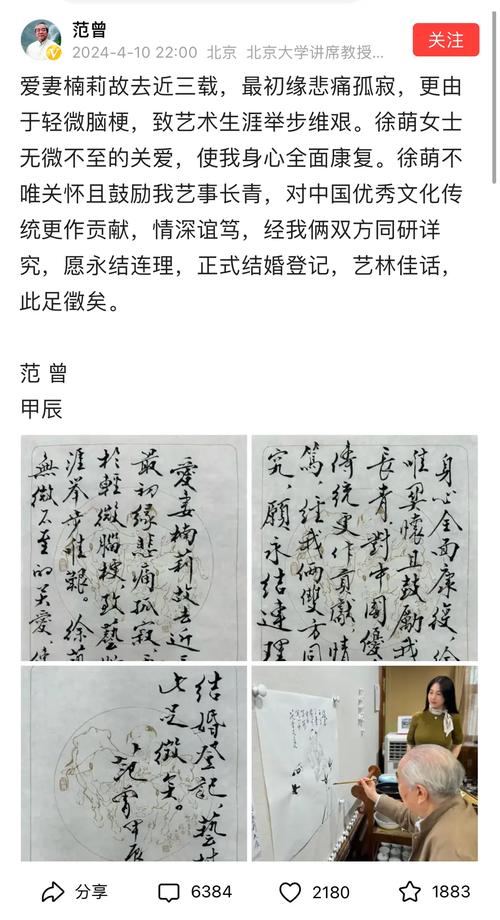 范曾
2024-4-10 22:00 北京 北京大学讲席教授...
关注
爱妻楠莉故去近三载，最初缘悲痛孤寂，更由
于轻微脑梗，致艺术生涯举步维艰。徐萌女士
无微不至的关爱，使我身心全面康复。徐萌不
唯关怀且鼓励我艺事长青，对中国优秀文化传
统更作贡献，情深谊笃，经我俩双方同研详
究，愿永结连理，正式结婚登记，艺林佳话，
此足徵矣。
范 曾
甲辰
愛妻楠莉故去近三
最初缘悲痛孤寂
於輕微腦梗致藝
涯举步惟艱。徐萌
無微不至的关爱，使
身心全面康復。徐
唯関懷且鼓勵我
長青，對中國優
傳統更作貢獻，情
篤，经我倆雙方同
究，願永结連理
结婚登记，藝林
此足徵矣。
范曾甲辰
分享
6384
2180
1883